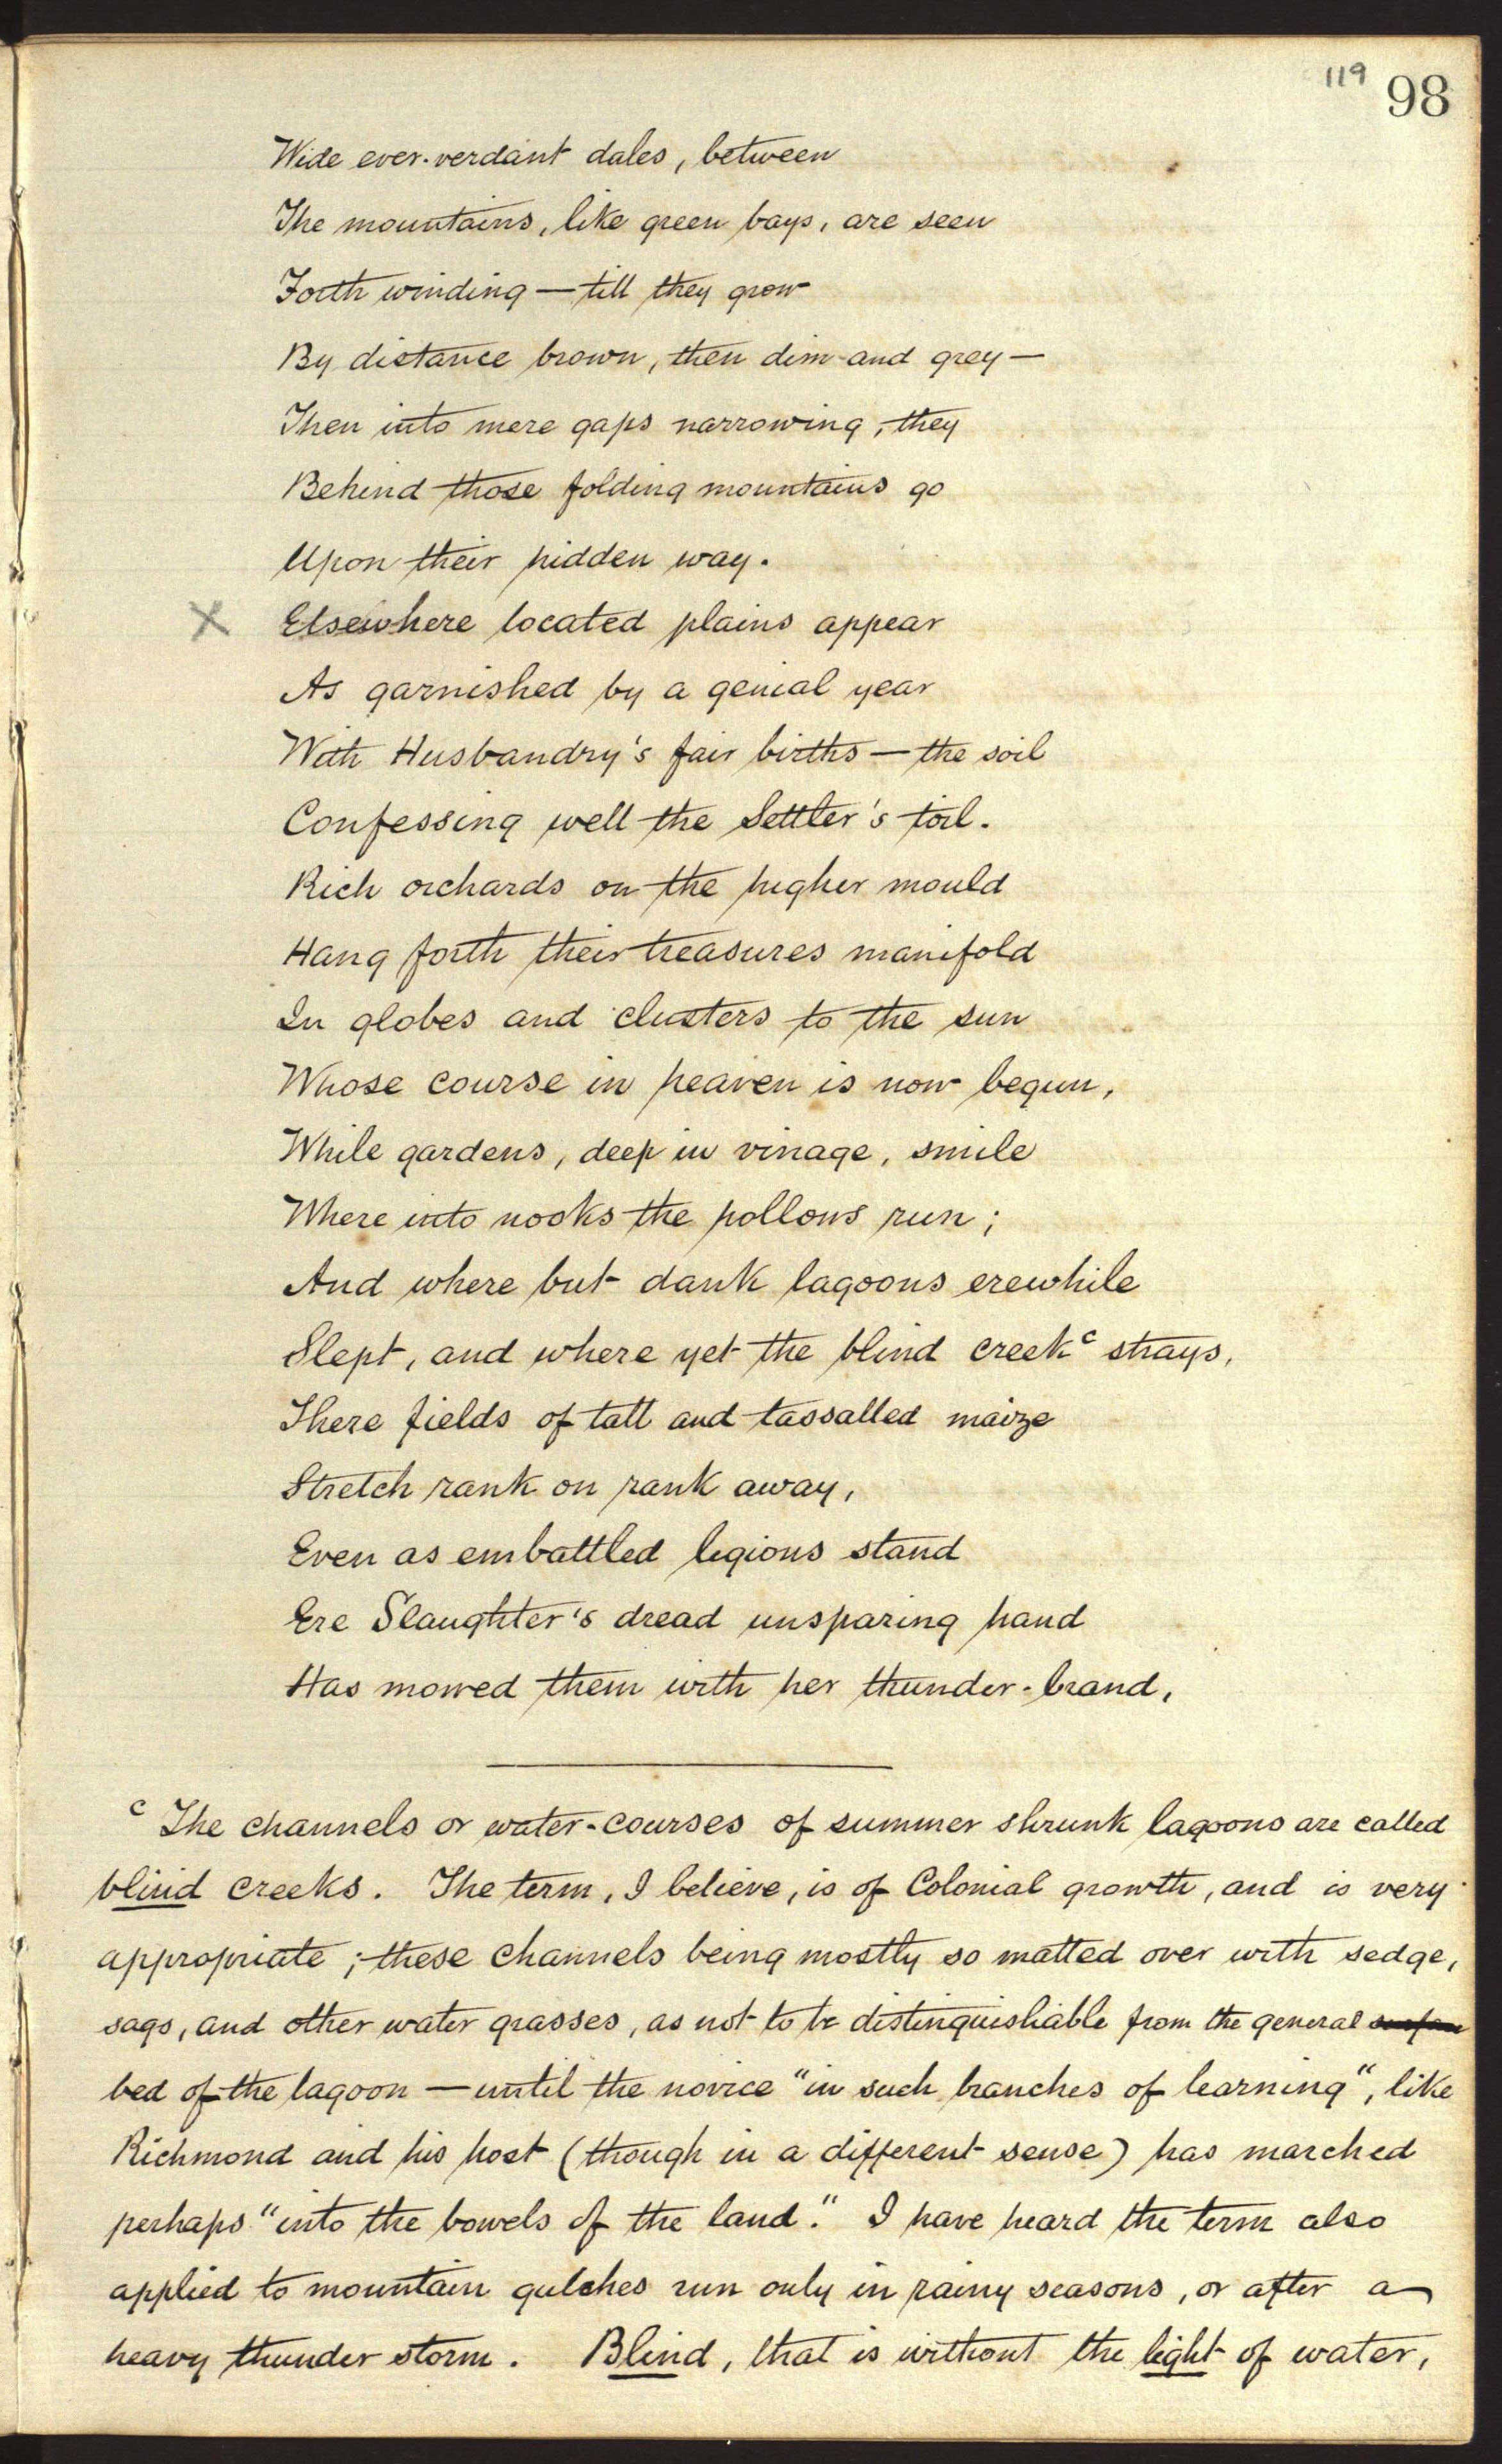 119 98
Wide ever-verdant dales, between
The mountains, like green bays, are seen
Forth winding — till they grow
By distance brown, then dim and grey —
Then into mere gaps narrowing, they
Behind those folding mountains go
Upon their hidden way.
X Elsewhere located plains appear
As garnished by a genial year
With Husbandry's fair births — the soil
Confessing well the Settler's toil.
Rich orchards on the higher mould
Hang forth their treasures manifold
In globes and clusters to the sun
Whose course in heaven is now begun,
While gardens, deep in vinage, smile
Where into nooks the hollows run;
And where but dank lagoons erewhile
Slept, and where yet the blind creek c strays,
There fields of tall and tassalled maize
Stretch rank on rank away,
Even as embattled legions stand
Ere Slaughter's dread unsparing hand
Has mowed them with her thunder-brand,
c The channels or water-courses of summer shrunk lagoons are called
blind creeks. The term, I believe, is of Colonial growth, and is very
appropriate; these channels being mostly so matted over with sedge,
sags, and other water grasses, as not to be distinguishable from the general
bed of the lagoon — until the novice "in such branches of learning", like
Richmond and his host (though in a different sense) has marched
perhaps "into the bowels of the land." I have heard the term also
applied to mountain gulches run only in rainy seasons, or after a
heavy thunder storm. Blind, that is without the light of water,